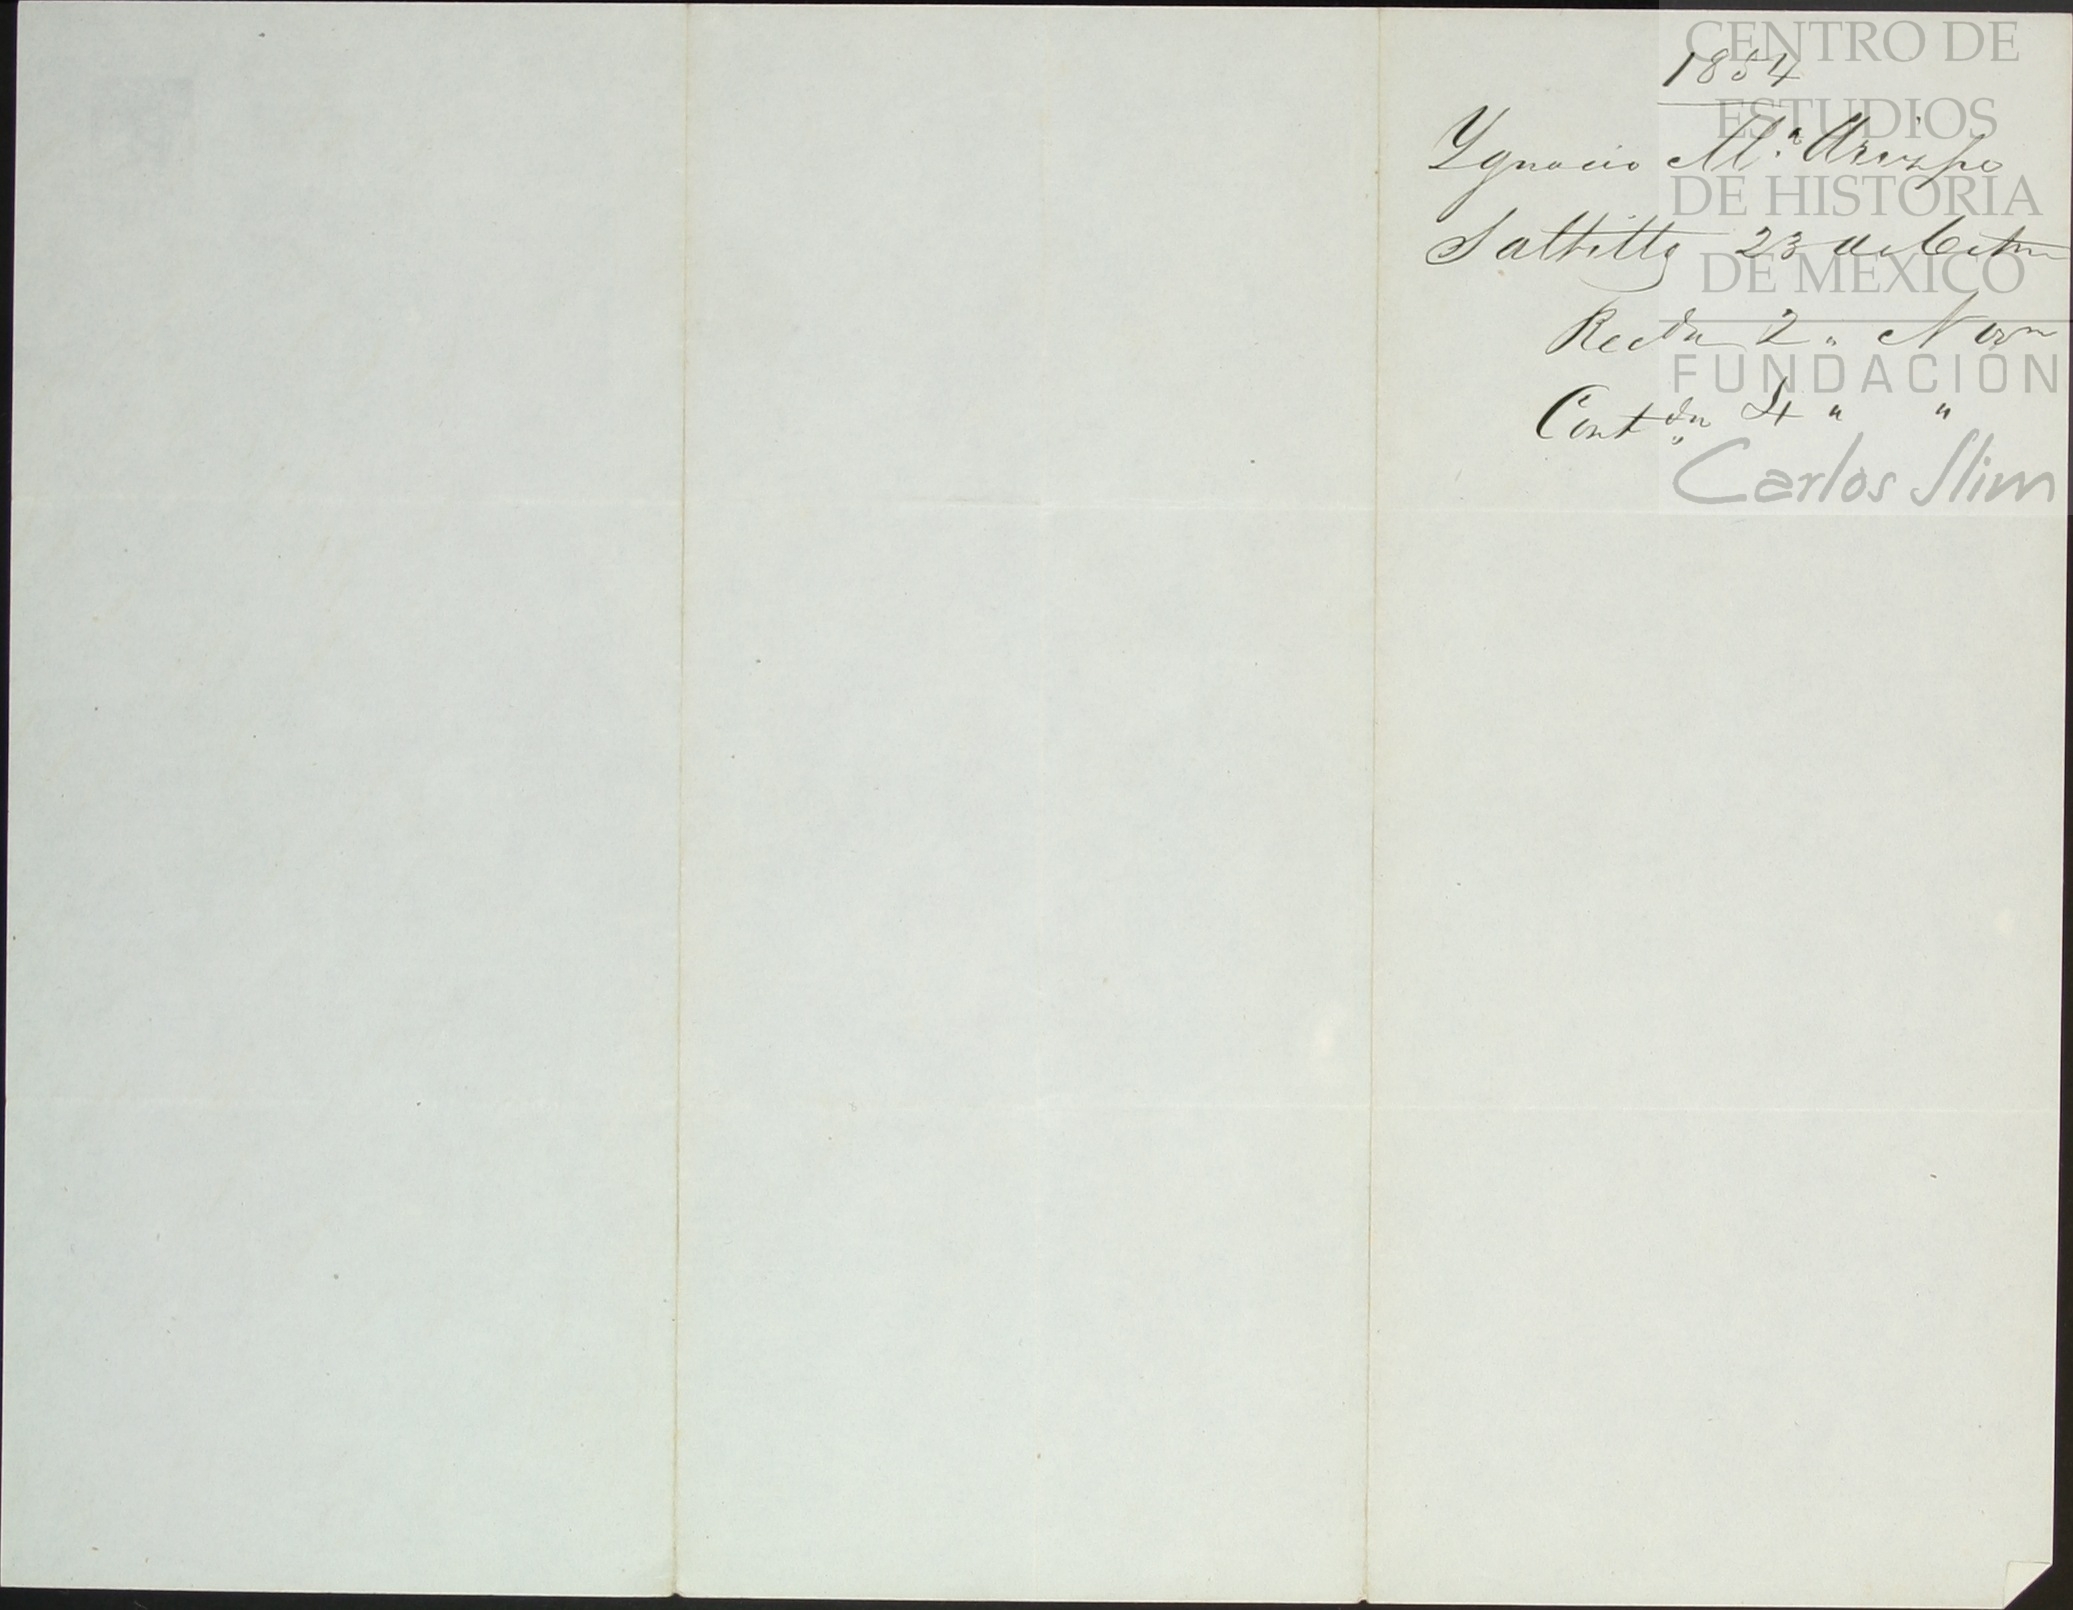 1854
Ygnacio M.ª Arizpe
Saltillo 23 de Octre
Recda 2 " Nove
Contda 4 " "
CENTRO DE
ESTUDIOS
DE HISTORIA
DE MEXICO
FUNDACIÓN
Carlos Slim